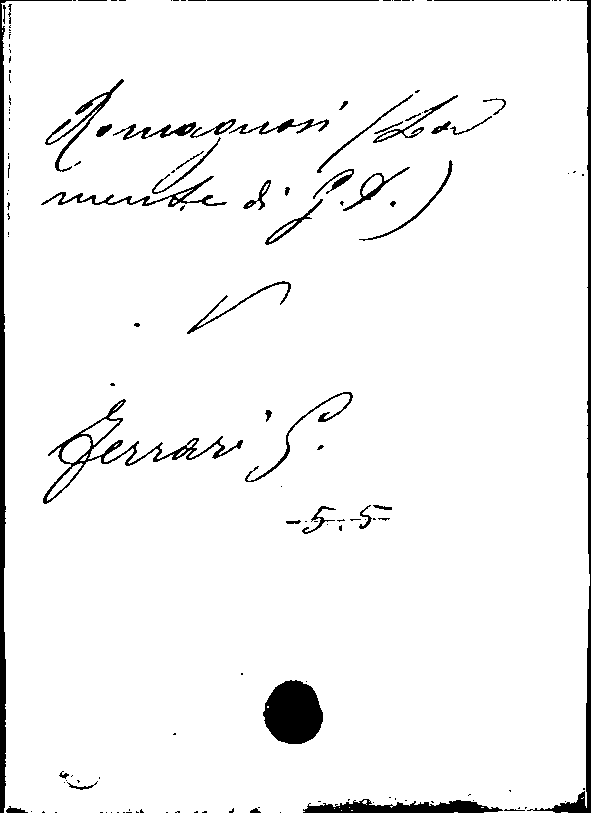 Romagnosi (La
mente di G. D.)
V
Ferrari G.
5. 5